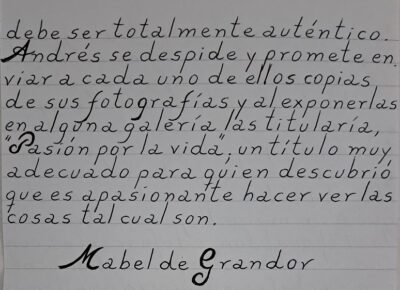 debe ser totalmente auténtico.
Andrés se despide y promete en.
viar a cada uno de ellos copias
de sus fotografías y al exponerlas
en alguna galería, las titularía,
"Pasión por la vida", un título muy
adecuado para quien descubrió
que es apasionante hacer ver las
cosas tal cual son.
Mabel de Grandor